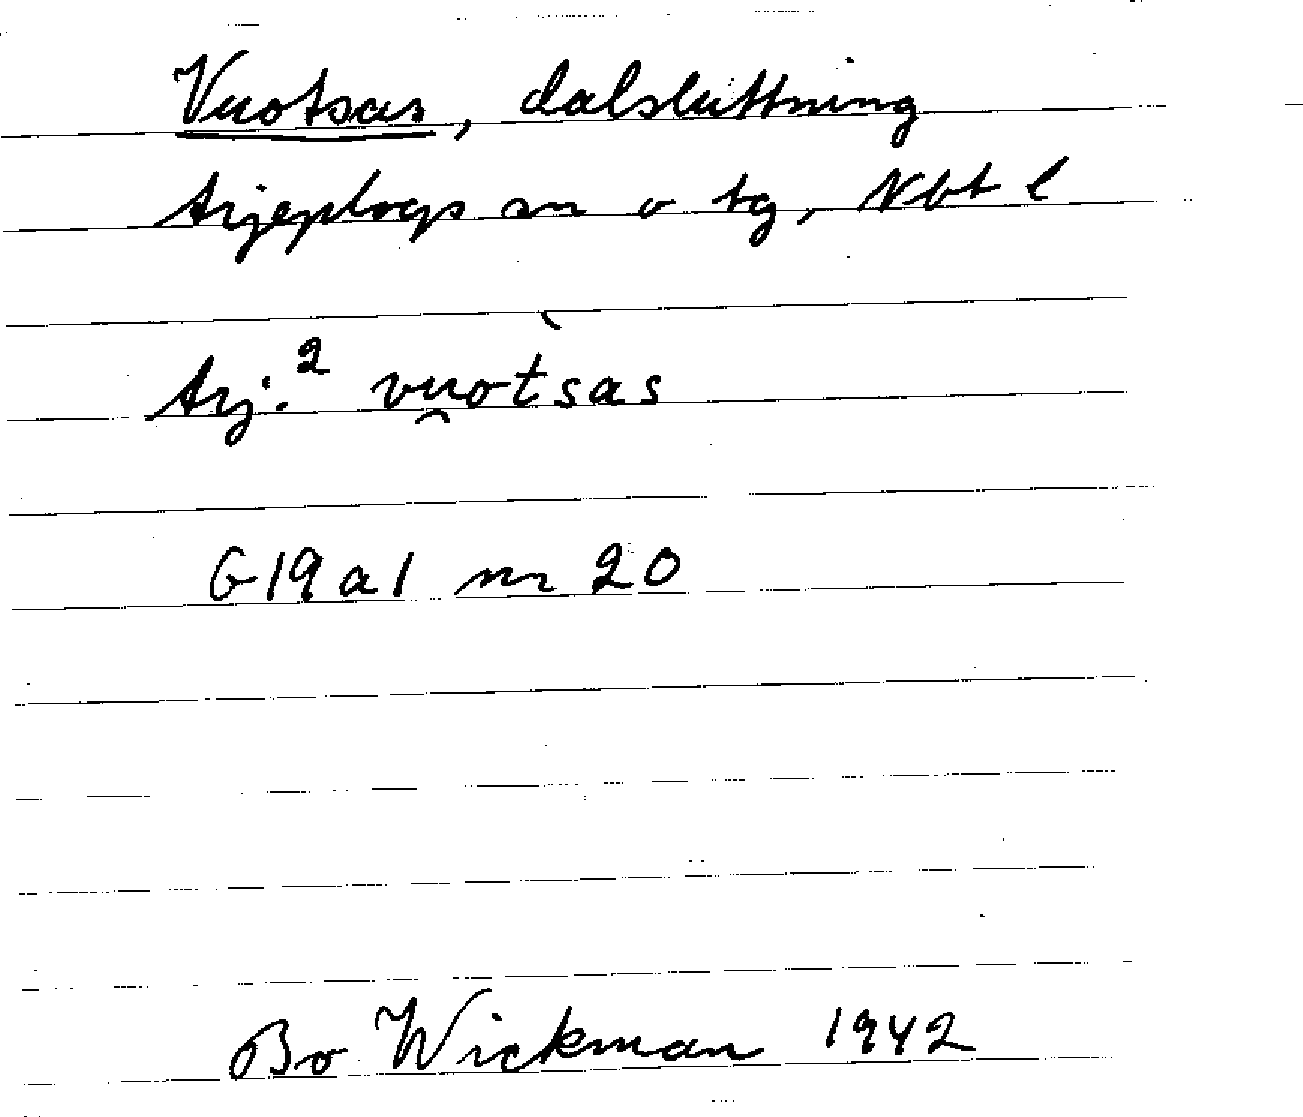 Vuotsas, dalsluttning
Arjeplogs sn o tg, Nbt l
Arj.² vu̯ot̀sas
G19a1 nr 20
Bo Wickman 1942